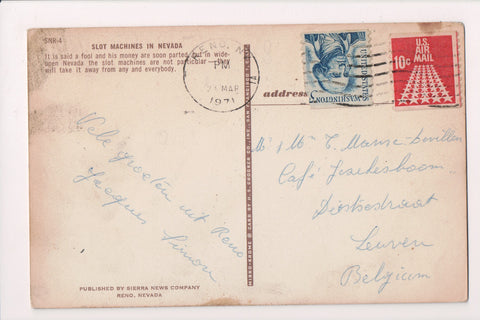 SNR-4
SLOT MACHINES IN NEVADA
It is said a fool and his money are soon parted, but in wide-
open Nevada the slot machines are not particular — they
will take it away from any and everybody.
RENO, N
PM
MAR
1971
WASHINGTON
UNITED STATES
U.S.
AIR
MAIL
10c
address
Vele groeten uit Reno
Jacques Simon
Mr & Mw T.
Café
Diestsestraat
Leuven
Belgium
PUBLISHED BY SIERRA NEWS COMPANY
RENO, NEVADA